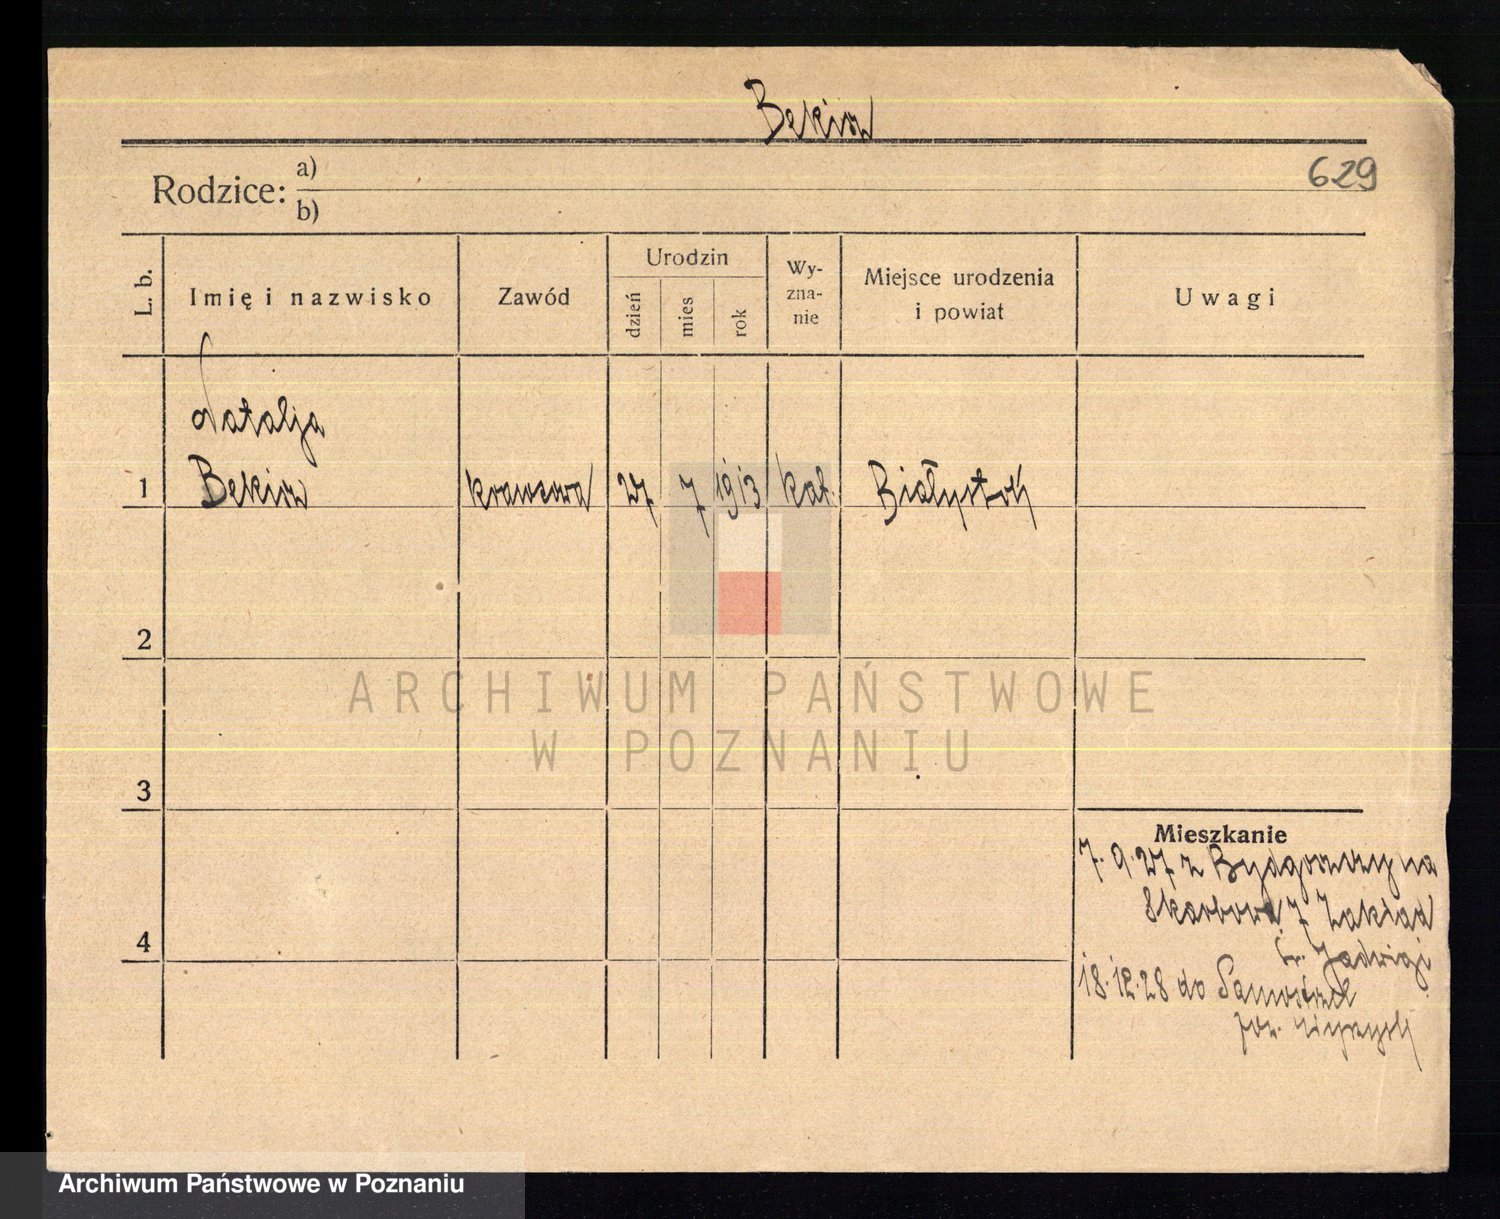 Bekin
629
Rodzice: a)
b)
L. b.
Imię i nazwisko
Zawód
Urodzin
dzień
mies
rok
Wy-
zna-
nie
Miejsce urodzenia
i powiat
Uwagi
Natalja
1 Bekin krawcowa 27 7 1913 kat. Białystok
2
3
4
Mieszkanie
7.9.27 z Bydgoszczy na
Skarbowa 7 Zakład
św. Jadwigi
18.12.28 do Samostrzel
pow. Wyrzysk
ARCHIWUM PAŃSTWOWE
W POZNANIU
Archiwum Państwowe w Poznaniu